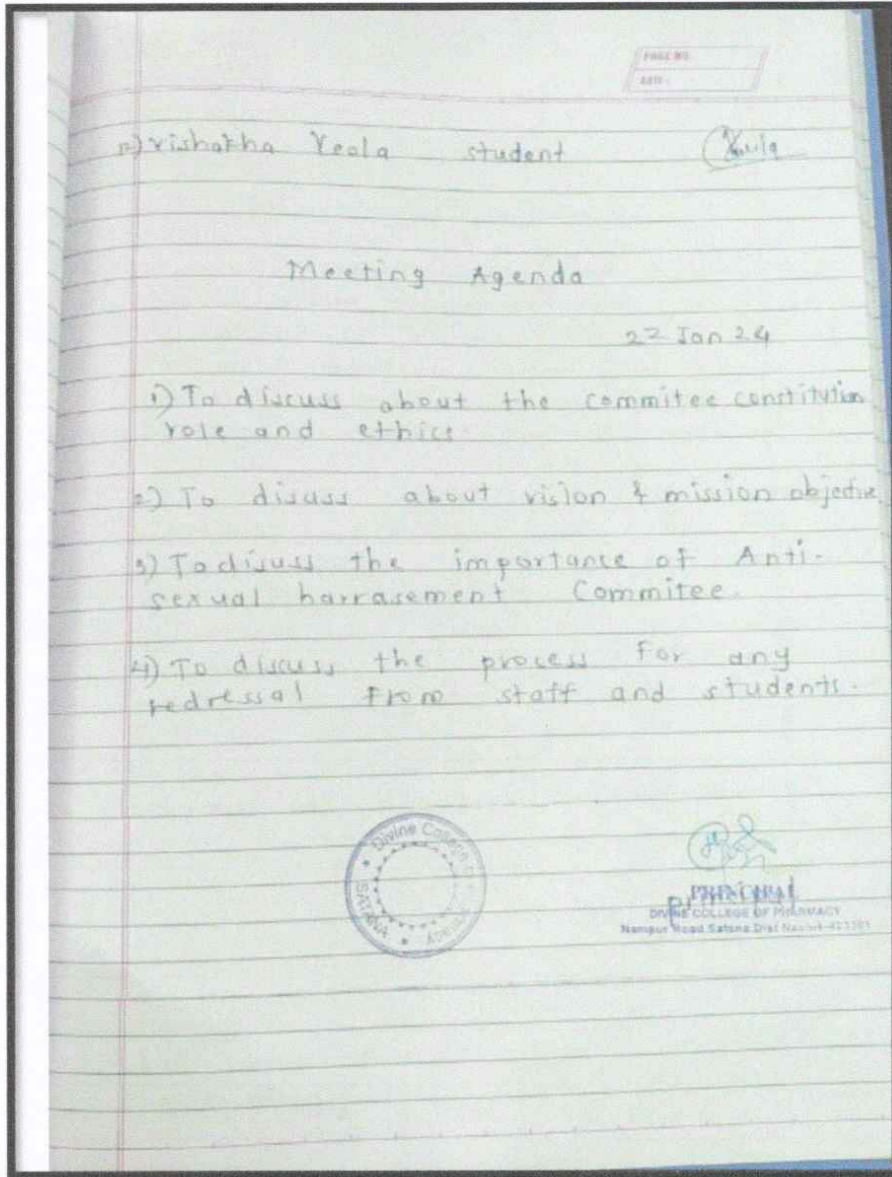 PAGE NO.
DATE:
12) Vishakha Yeola student
Meeting Agenda
22 Jan 24
1) To discuss about the commitee constitution
role and ethics
2) To disuss about vision & mission objective
3) To disuss the importance of Anti-
sexual harrasement Commitee.
4) To discuss the process for any
redressal from staff and students.
Divine College of
SATANA
PRINCIPAL
DIVINE COLLEGE OF PHARMACY
Nampur Road Satana Dist Nashik-423301